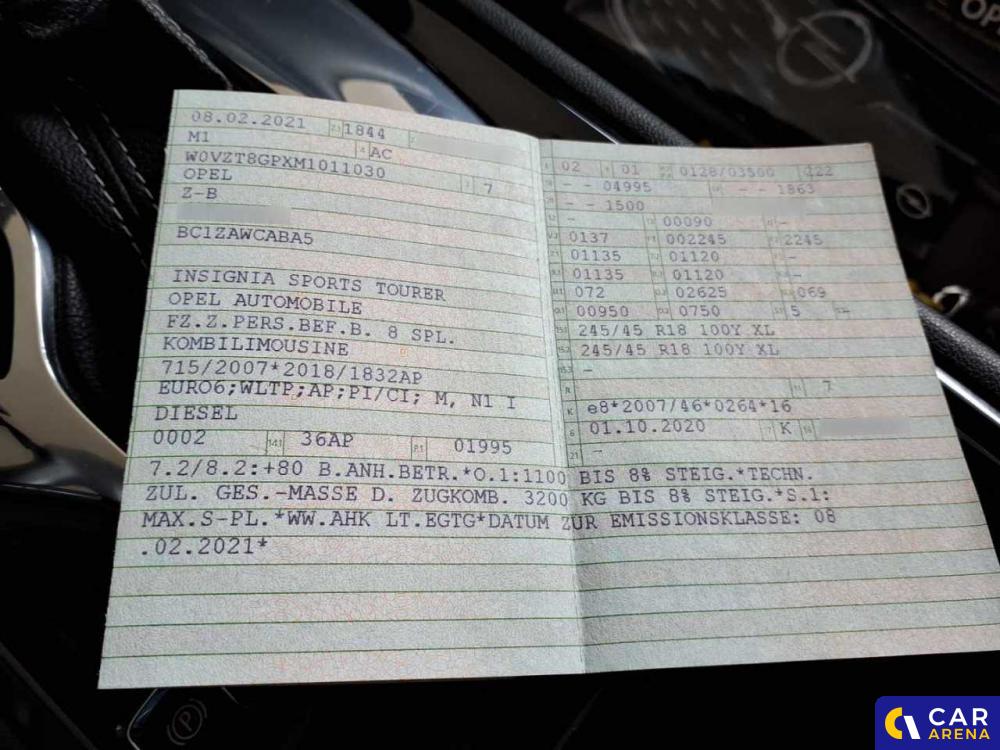 08.02.2021 1844
M1 AC
W0VZT8GPXM1011030
OPEL 7
Z-B
BC1ZAWCABA5
INSIGNIA SPORTS TOURER
OPEL AUTOMOBILE
FZ.Z.PERS.BEF.B. 8 SPL.
KOMBILIMOUSINE
715/2007*2018/1832AP
EURO6;WLTP;AP;PI/CI; M, N1 I
DIESEL
0002 14.1 36AP P.1 01995
02 01 0128/03500 222
- - 04995 - - 1863
- - 1500
- 00090 -
0137 002245 2245
01135 01120 -
01135 01120 -
072 02625 069
00950 0750 5
245/45 R18 100Y XL
245/45 R18 100Y XL
-
R 11 7
K e8*2007/46*0264*16
6 01.10.2020 K
21 -
7.2/8.2:+80 B.ANH.BETR.*O.1:1100 BIS 8% STEIG.*TECHN.
ZUL. GES.-MASSE D. ZUGKOMB. 3200 KG BIS 8% STEIG.*S.1:
MAX.S-PL.*WW.AHK LT.EGTG*DATUM ZUR EMISSIONSKLASSE: 08
.02.2021*
CAR
ARENA